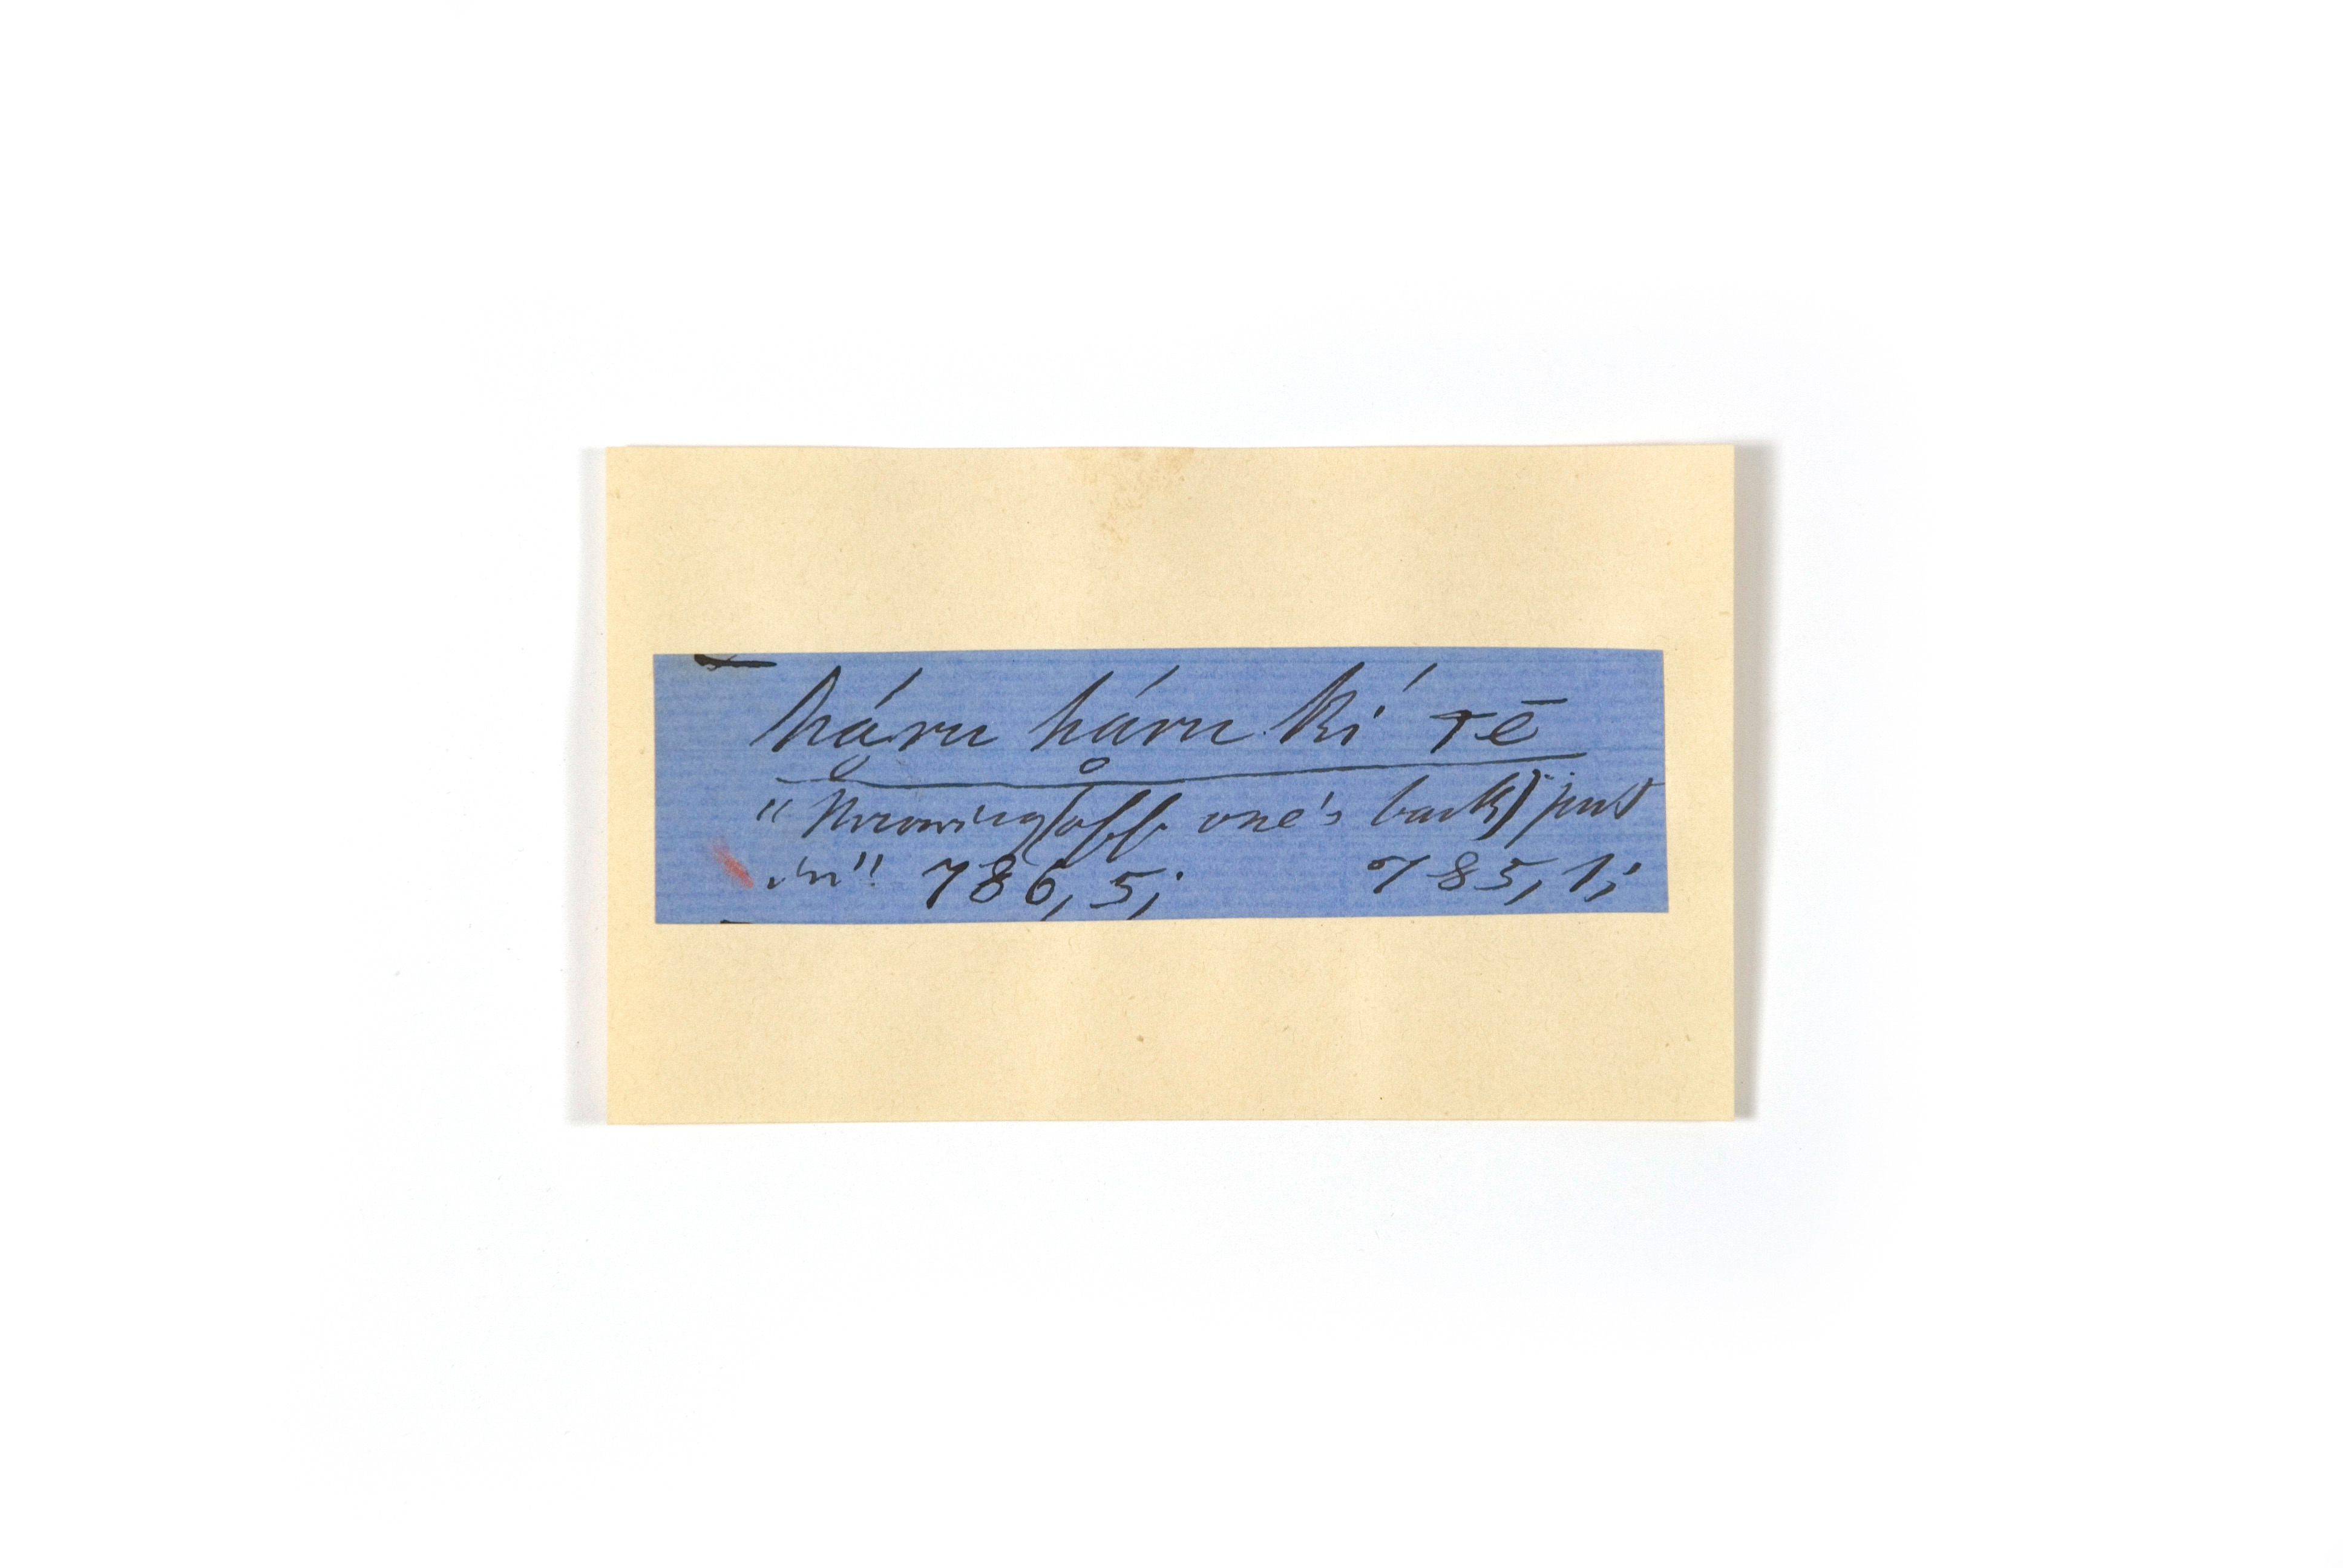 hạ́ru hḁ́ru kí tē
"throwing (off one's back) put
in" 786,5; 785,1;